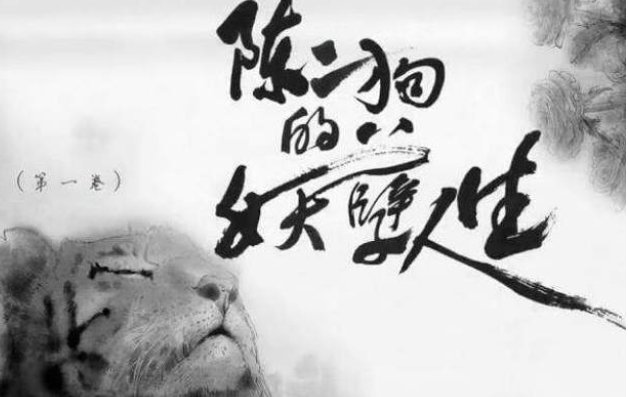 陈二狗
的
妖孽人生
(第一卷)